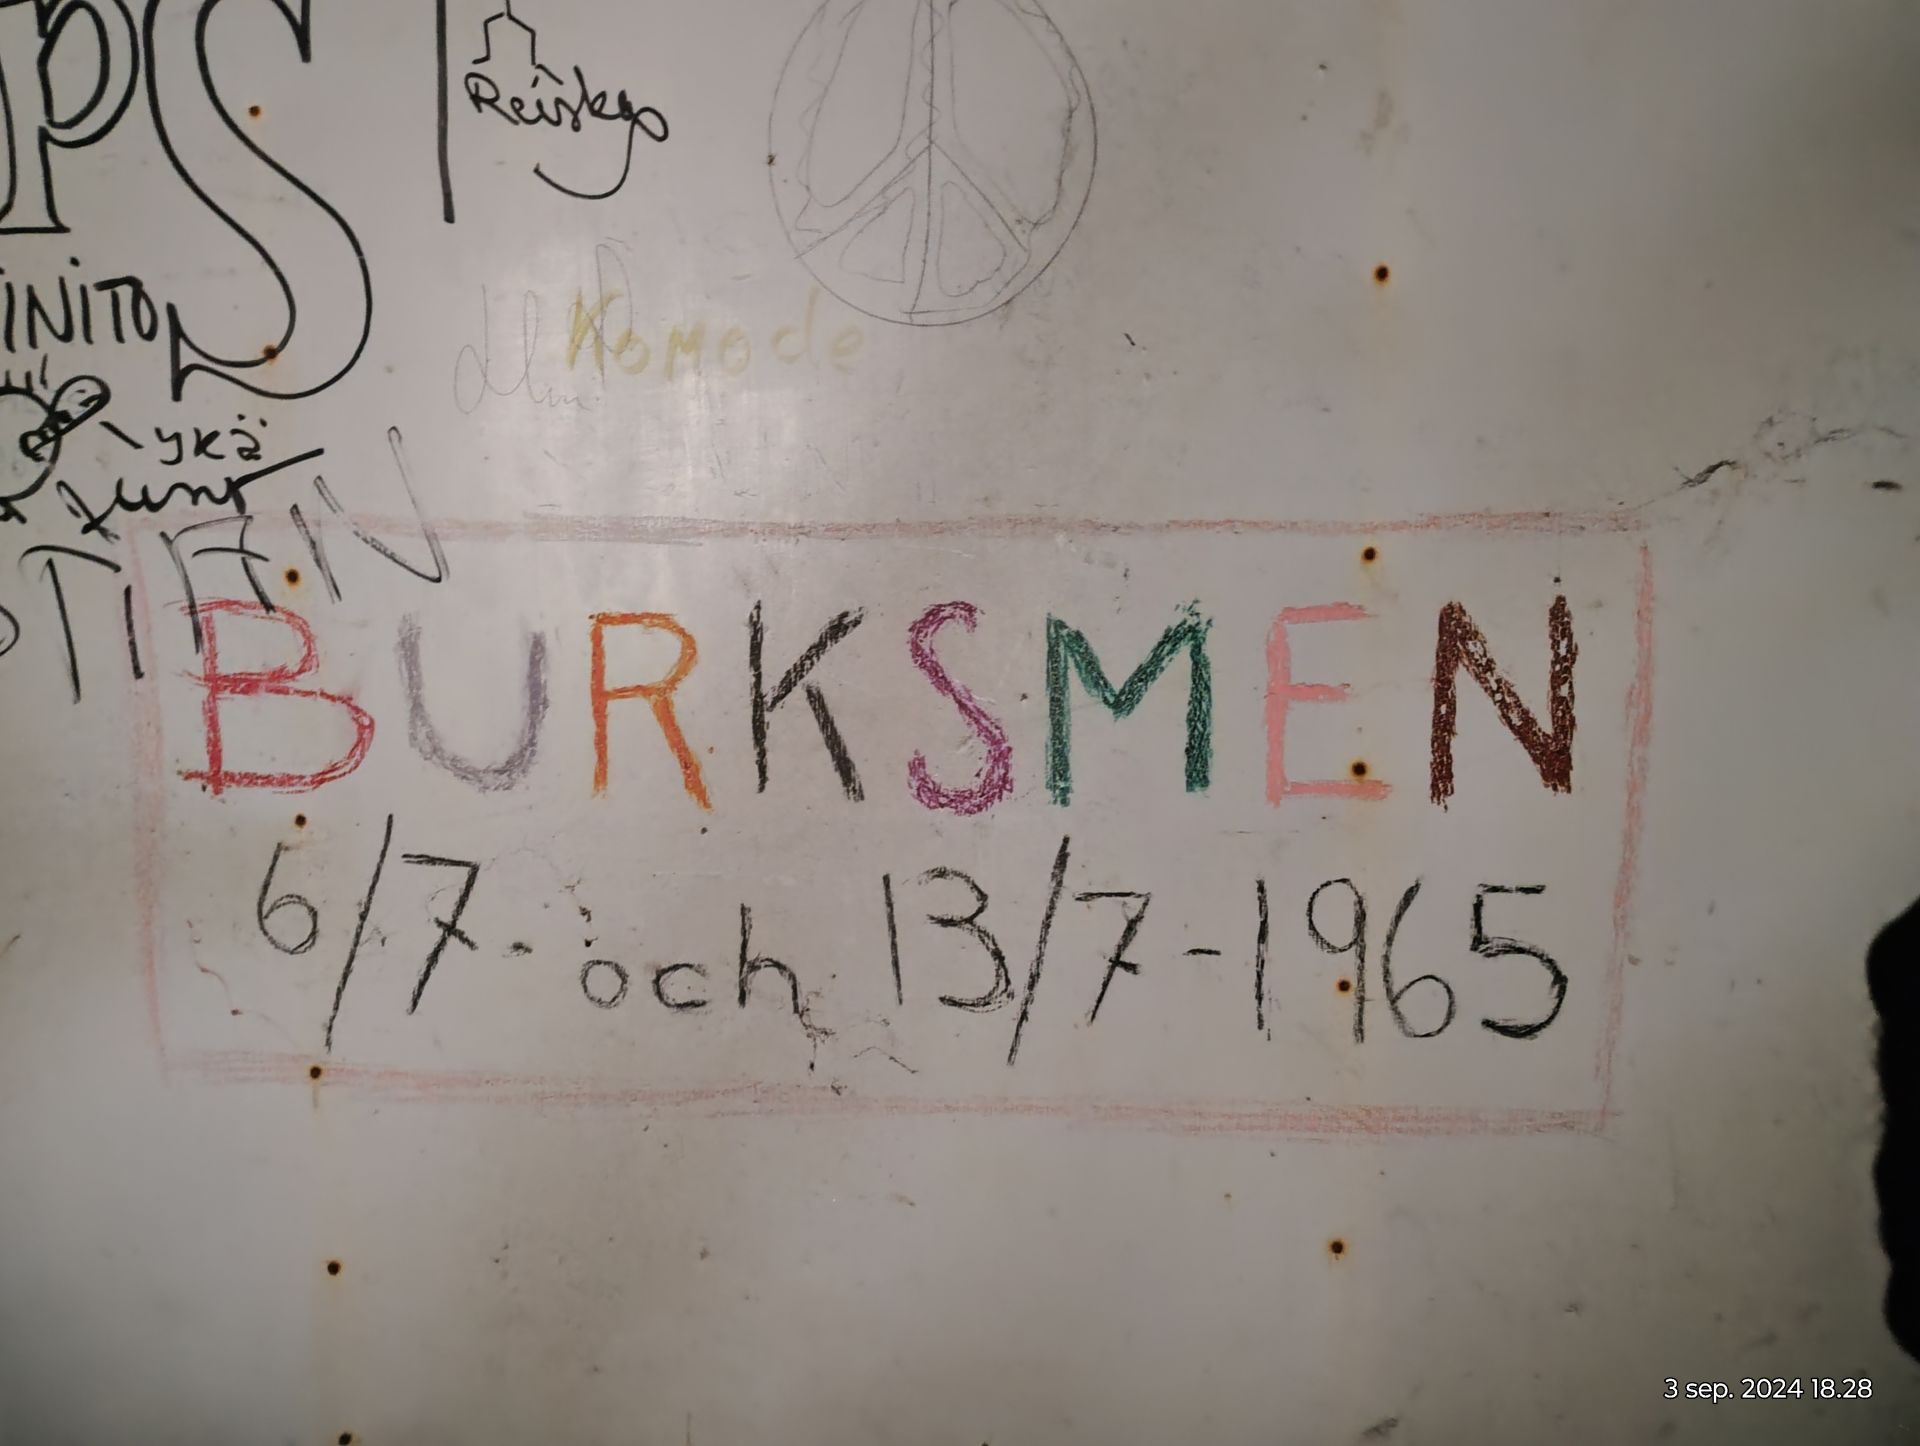 PS
Reisky
INITO
Komode
ykä
TIAN
BURKSMEN
6/7- och 13/7-1965
3 sep. 2024 18.28